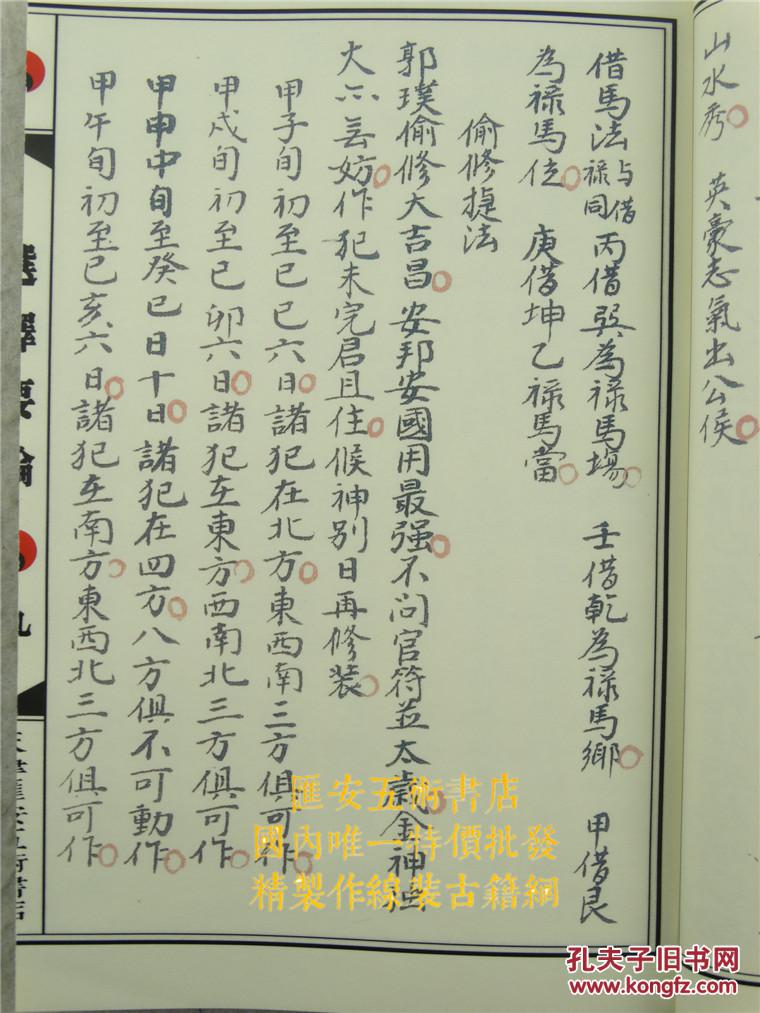 山水秀 英豪志氣出公侯
借馬法與借祿同 丙借巽為祿馬場 壬借乾為祿馬鄉 甲借艮
為祿馬位 庚借坤乙祿馬當
偷修捷法
郭璞偷修大吉昌 安邦安國用最强 不问官符並太歲 金神
火 妨 作犯未完君且住 候神别日再修装
甲子旬初至己巳六日 諸犯在北方 東西南三方俱可作
甲戌旬初至己卯六日 諸犯在東方 西南北三方俱可作
甲申中旬至癸巳日十日 諸犯在四方 八方俱不可動作
甲午旬初至己亥六日 諸犯在南方 東西北三方俱可作
選擇要論 九
匯安五術書店
國內唯一特價批發
精製作線裝古籍網
孔夫子旧书网
www.kongfz.com